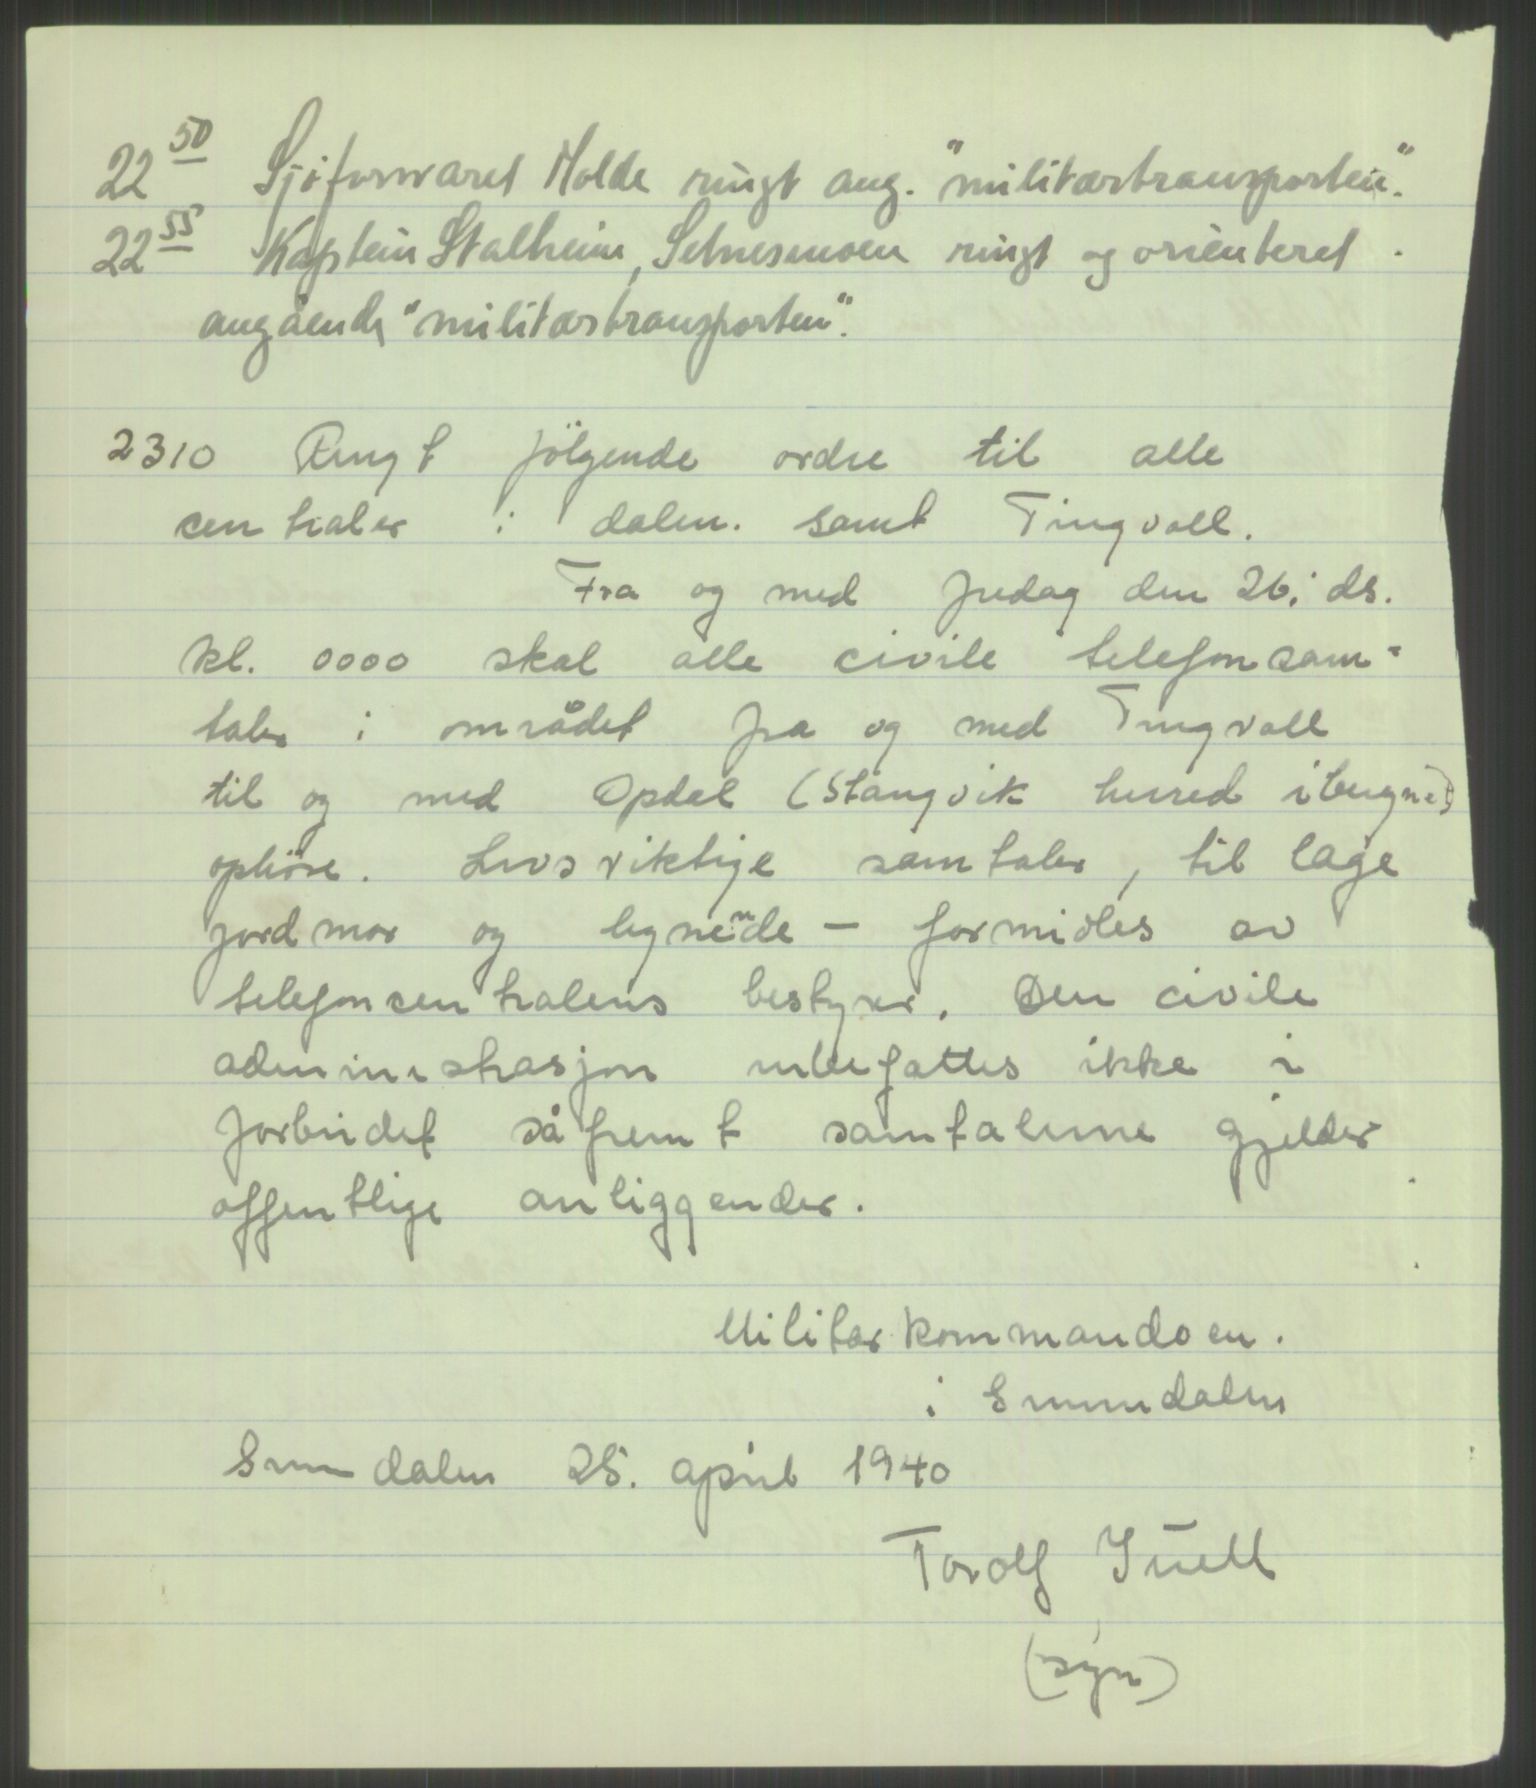 22 50 Sjøforsvaret Molde ringt ang. "militærtransporten".
22 55 Kaptein Stalheim, Setnesmoen ringt og orienteret
angående "militærtransporten".
2310 Ringt følgende ordre til alle
centraler i dalen. samt Tingvoll.
Fra og med fredag den 26. ds.
kl. 0000 skal alle civile telefonsam-
taler i området fra og med Tingvoll
til og med Opdal (Stangvik herred iberegnet)
ophøre. Livsviktige samtaler, til læge
jordmor og lignende - formidles av
telefoncentralens bestyrer. Den civile
administrasjon innbefattes ikke i
forbudet såfremt samtalerne gjelder
offentlige anliggender.
Militærkommandoen.
i Sunndalen
Sunndalen 25. april 1940
Torolf Juell
(sign)